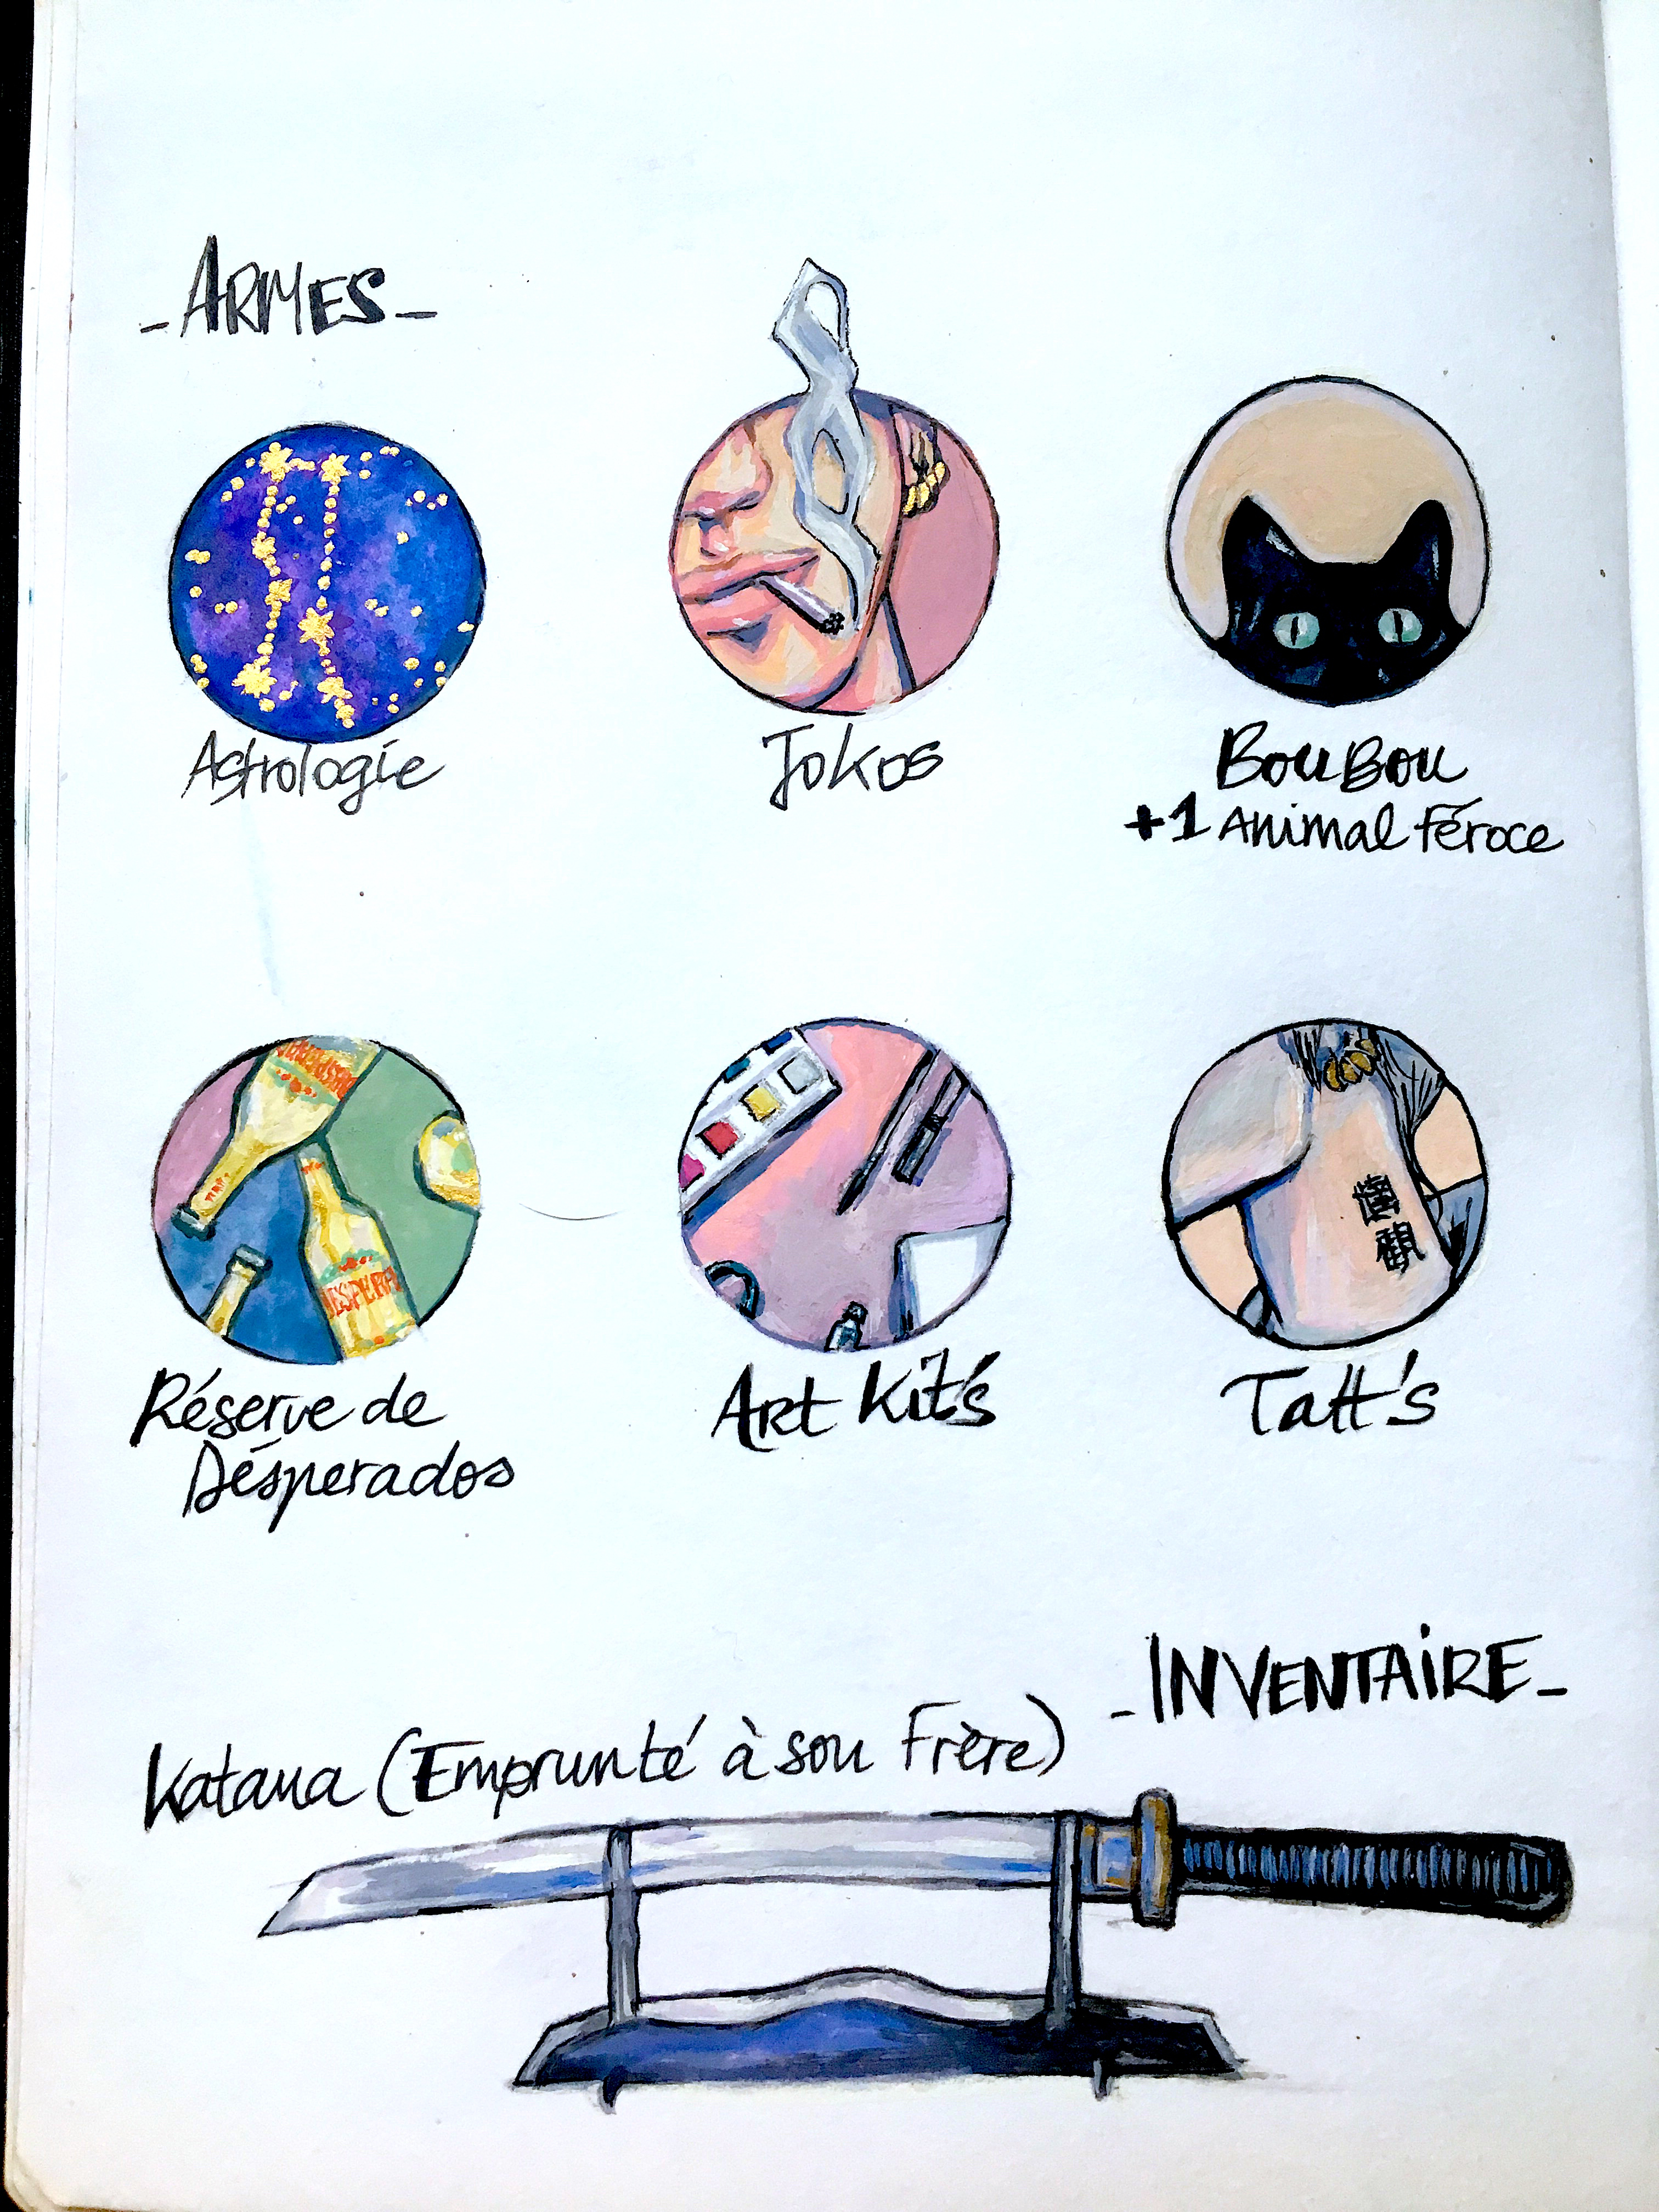 - ARMES -
Astrologie
Jokos
BouBou
+1 Animal Féroce
DESPERA
Réserve de
Désperados
Art Kit's
Tatt's
- INVENTAIRE -
Katana (Emprunté à son Frère)